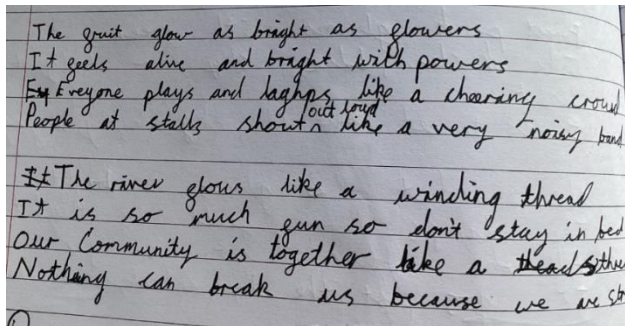 The fruit glow as bright as flowers
It feels alive and bright with powers
Ev Eveyone plays and laghps like a cheering crowd
People at stalls shout out loud like a very noisy band
It The river flows like a winding thread
It is so much fun so don't stay in bed
Our Community is together like a
Nothing can break us because we are